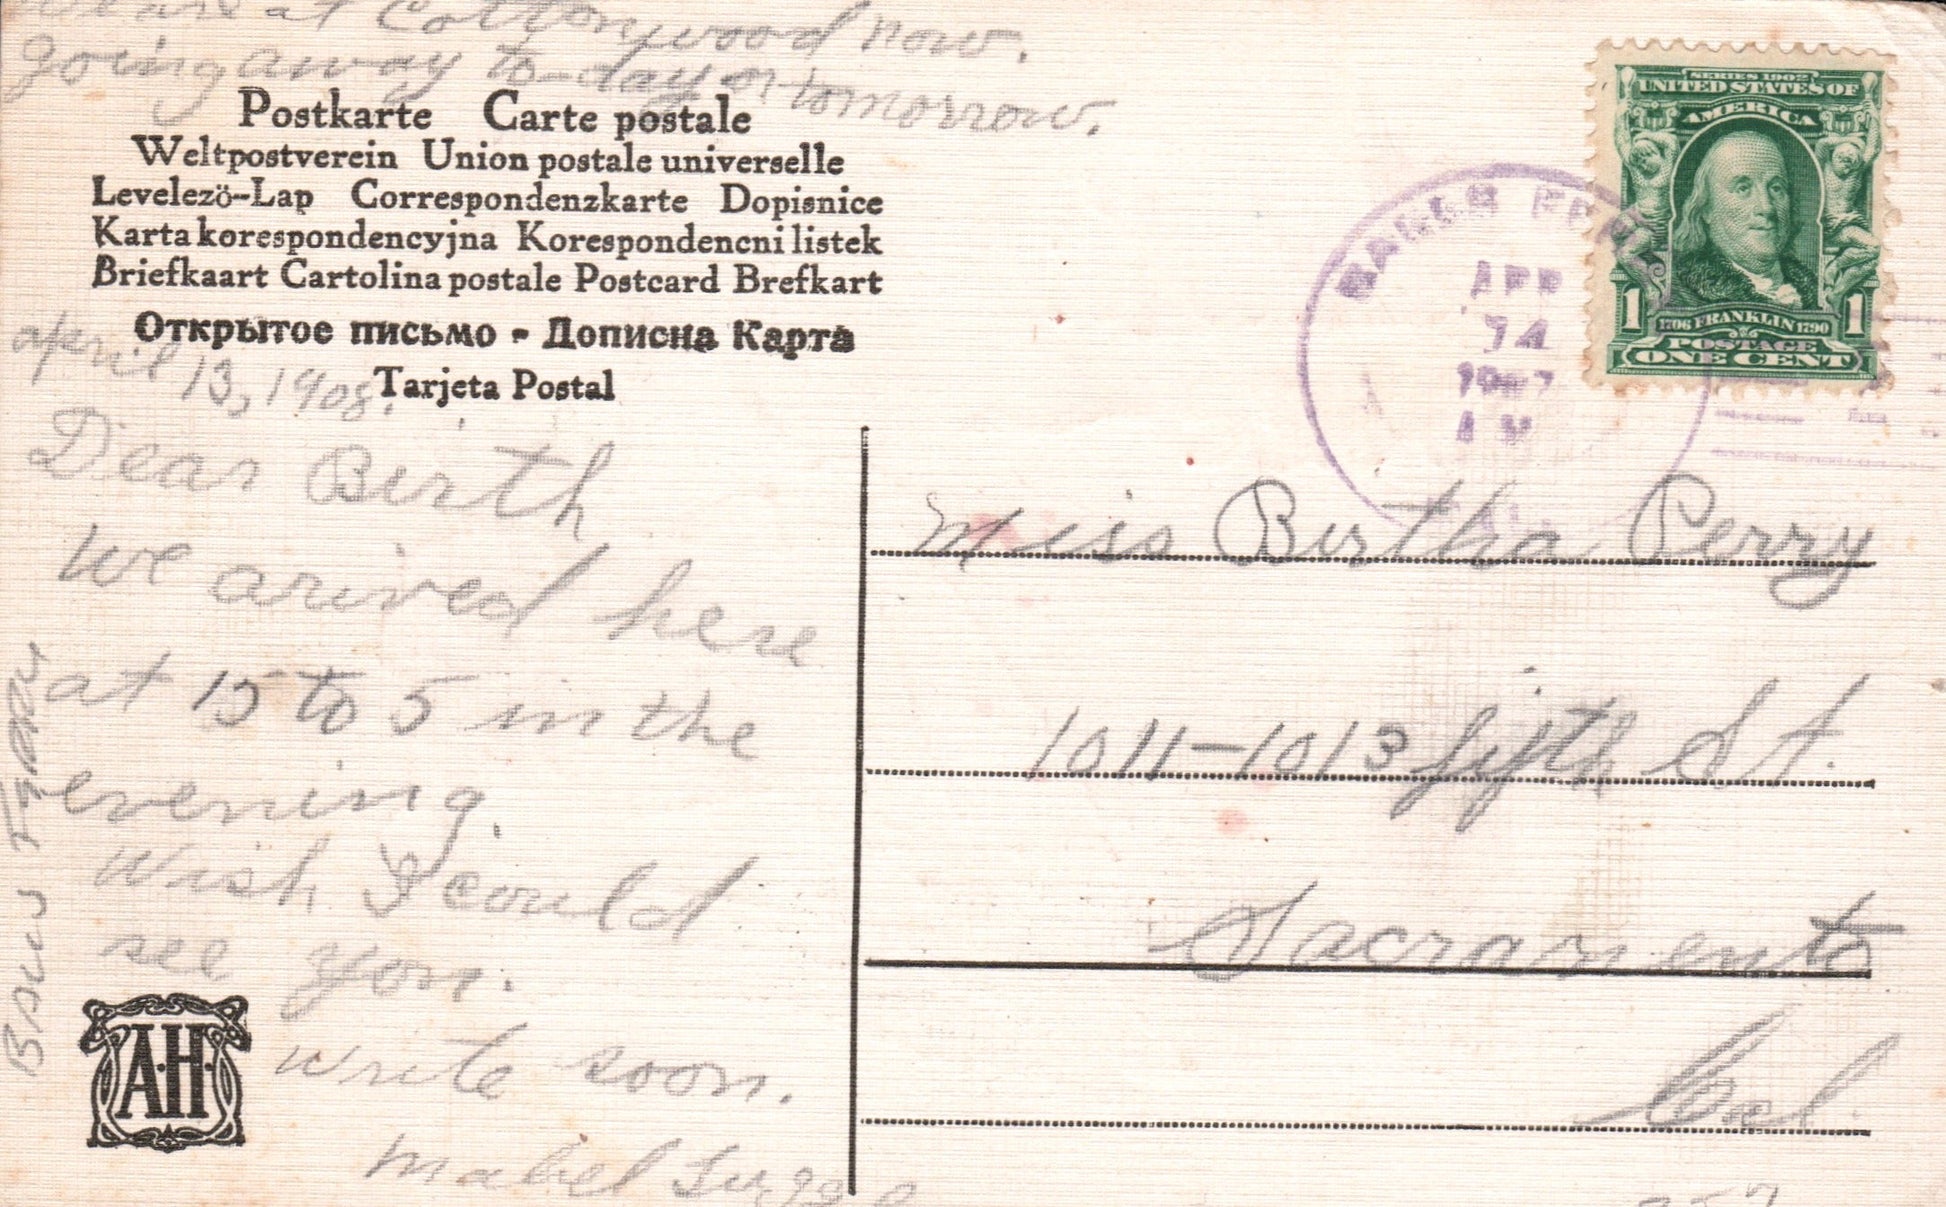 We are at Cottonwood now.
going away to-day or tomorrow.
Postkarte Carte postale
Weltpostverein Union postale universelle
Levelezö-Lap Correspondenzkarte Dopisnice
Karta korespondencyjna Korespondencni listek
Briefkaart Cartolina postale Postcard Brefkart
Открытое письмо - Дописна Карта
Tarjeta Postal
april 13, 1908.
Dear Birth
we arived here
at 15 to 5 in the
evening.
Wish I could
see you.
write soon.
Mabel
A·H·
SERIES 1902
UNITED STATES OF
AMERICA
1706 FRANKLIN 1790
1 1
POSTAGE
ONE CENT
APR
14
Miss Birtha Perry
1011-1013 fifth St.
Sacramento
Cal.